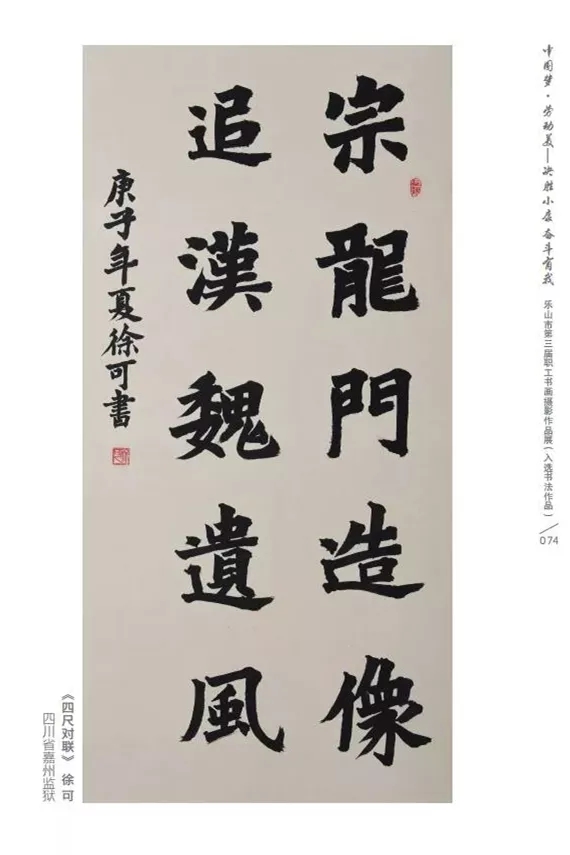 宗龍門造像
追漢魏遺風
庚子年夏徐可書
中国梦·劳动美——决胜小康 奋斗有我
乐山市第三届职工书画摄影作品展（入选书法作品）
074
《四尺对联》 徐可
四川省嘉州监狱